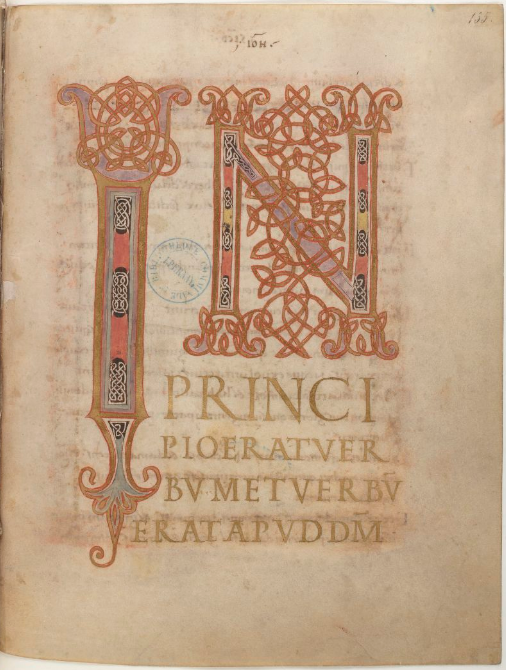 155
IOH
IN
PRINCI
PIOERATVER
BVMETVERBV̅
ERATAPVDDM̅